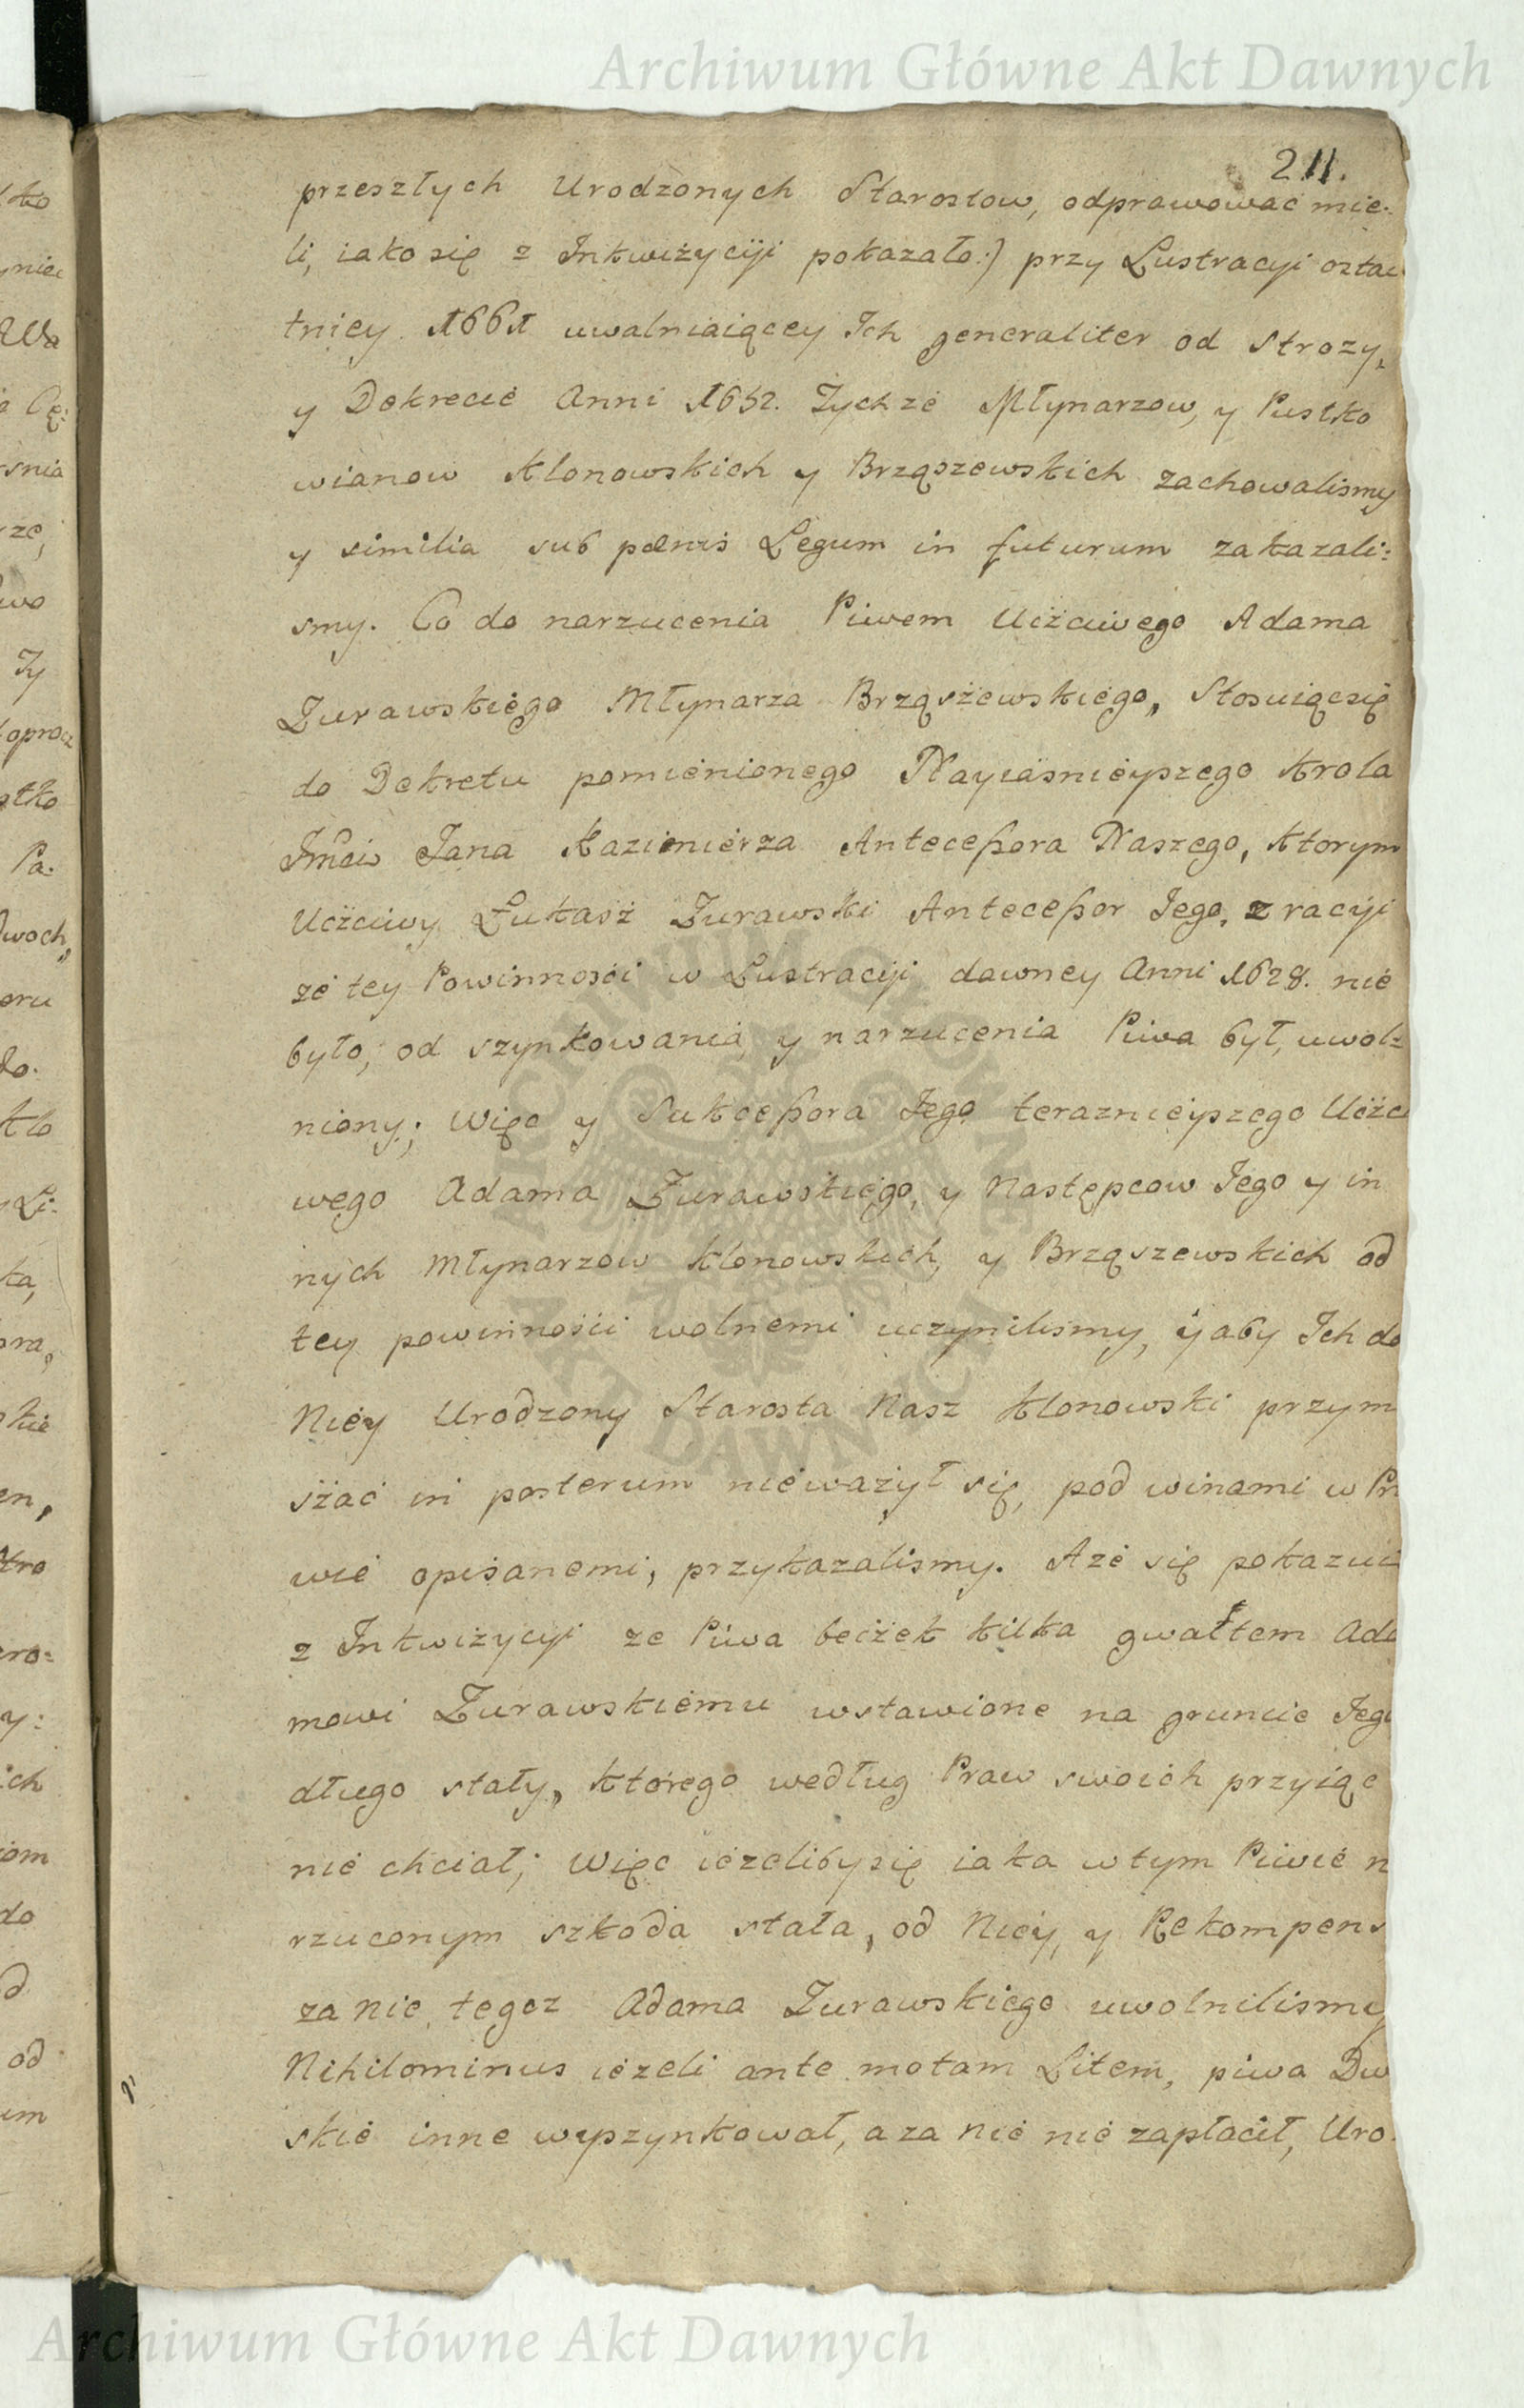 Archiwum Główne Akt Dawnych
211.
przeszłych Urodzonych Starostow, odprawować mie:
li, iako się z Inkwizycÿi pokazało:) przy Lustracyi ostat
tniey 1661 uwalniaiącey Ich generaliter od Strozy,
y Dekrecie Anni 1652. Tychże Młynarzow, y Pustko
wianow Klonowskich y Brząszewskich zachowalismy
y similia sub pœnis Legum in futurum zakazali:
smy. Co do narzucenia Piwem Uczciwego Adama
Zurawskiego Młynarza Brząszewskiego, Stosuiąc się
do Dekretu pomienionego Nayiasnieyszego Krola
Jmci Jana Kazimierza Antecessora Naszego, Ktorym
Uczciwy Łukasz Zurawski Antecessor Jego, z racÿi
że tey Powinnosci w Lustracÿi dawney Anni 1628. nie
było, od szynkowania y narzucenia Piwa był, uwol:
niony; Więc y Sukcessora Jego teraznieyszego Uczc
wego Adama Zurawskiego, y Następcow Jego y in
nych Młynarzow Klonowskich, y Brząszewskich od
tey powinnosci wolnemi uczynilismy, y aby Ich do
Niey Urodzony Starosta Nasz Klonowski przym
szać in posterum nieważył się, pod winami w Pr
wie opisanemi, przykazalismy. Aże się pokazui
z Inkwizycyi ze Piwa beczek kilka gwałtem Ada
mowi Zurawskiemu wstawione na gruncie Jego
długo stały, którego według Praw swoich przyiąc
nie chciał; Więc ieżeliby się iaka w tym Piwie n
rzuconym szkoda stała, od Niey, y Rekompens
za nie, tegoz Adama Zurawskiego uwolnilismy
Nihilominus ieżeli ante motam Litem, piwa Dw
skie inne wyszynkował, a za nie nie zapłacił, Uro
ARCHIWUM GŁÓWNE
AKT DAWNYCH
Archiwum Główne Akt Dawnych